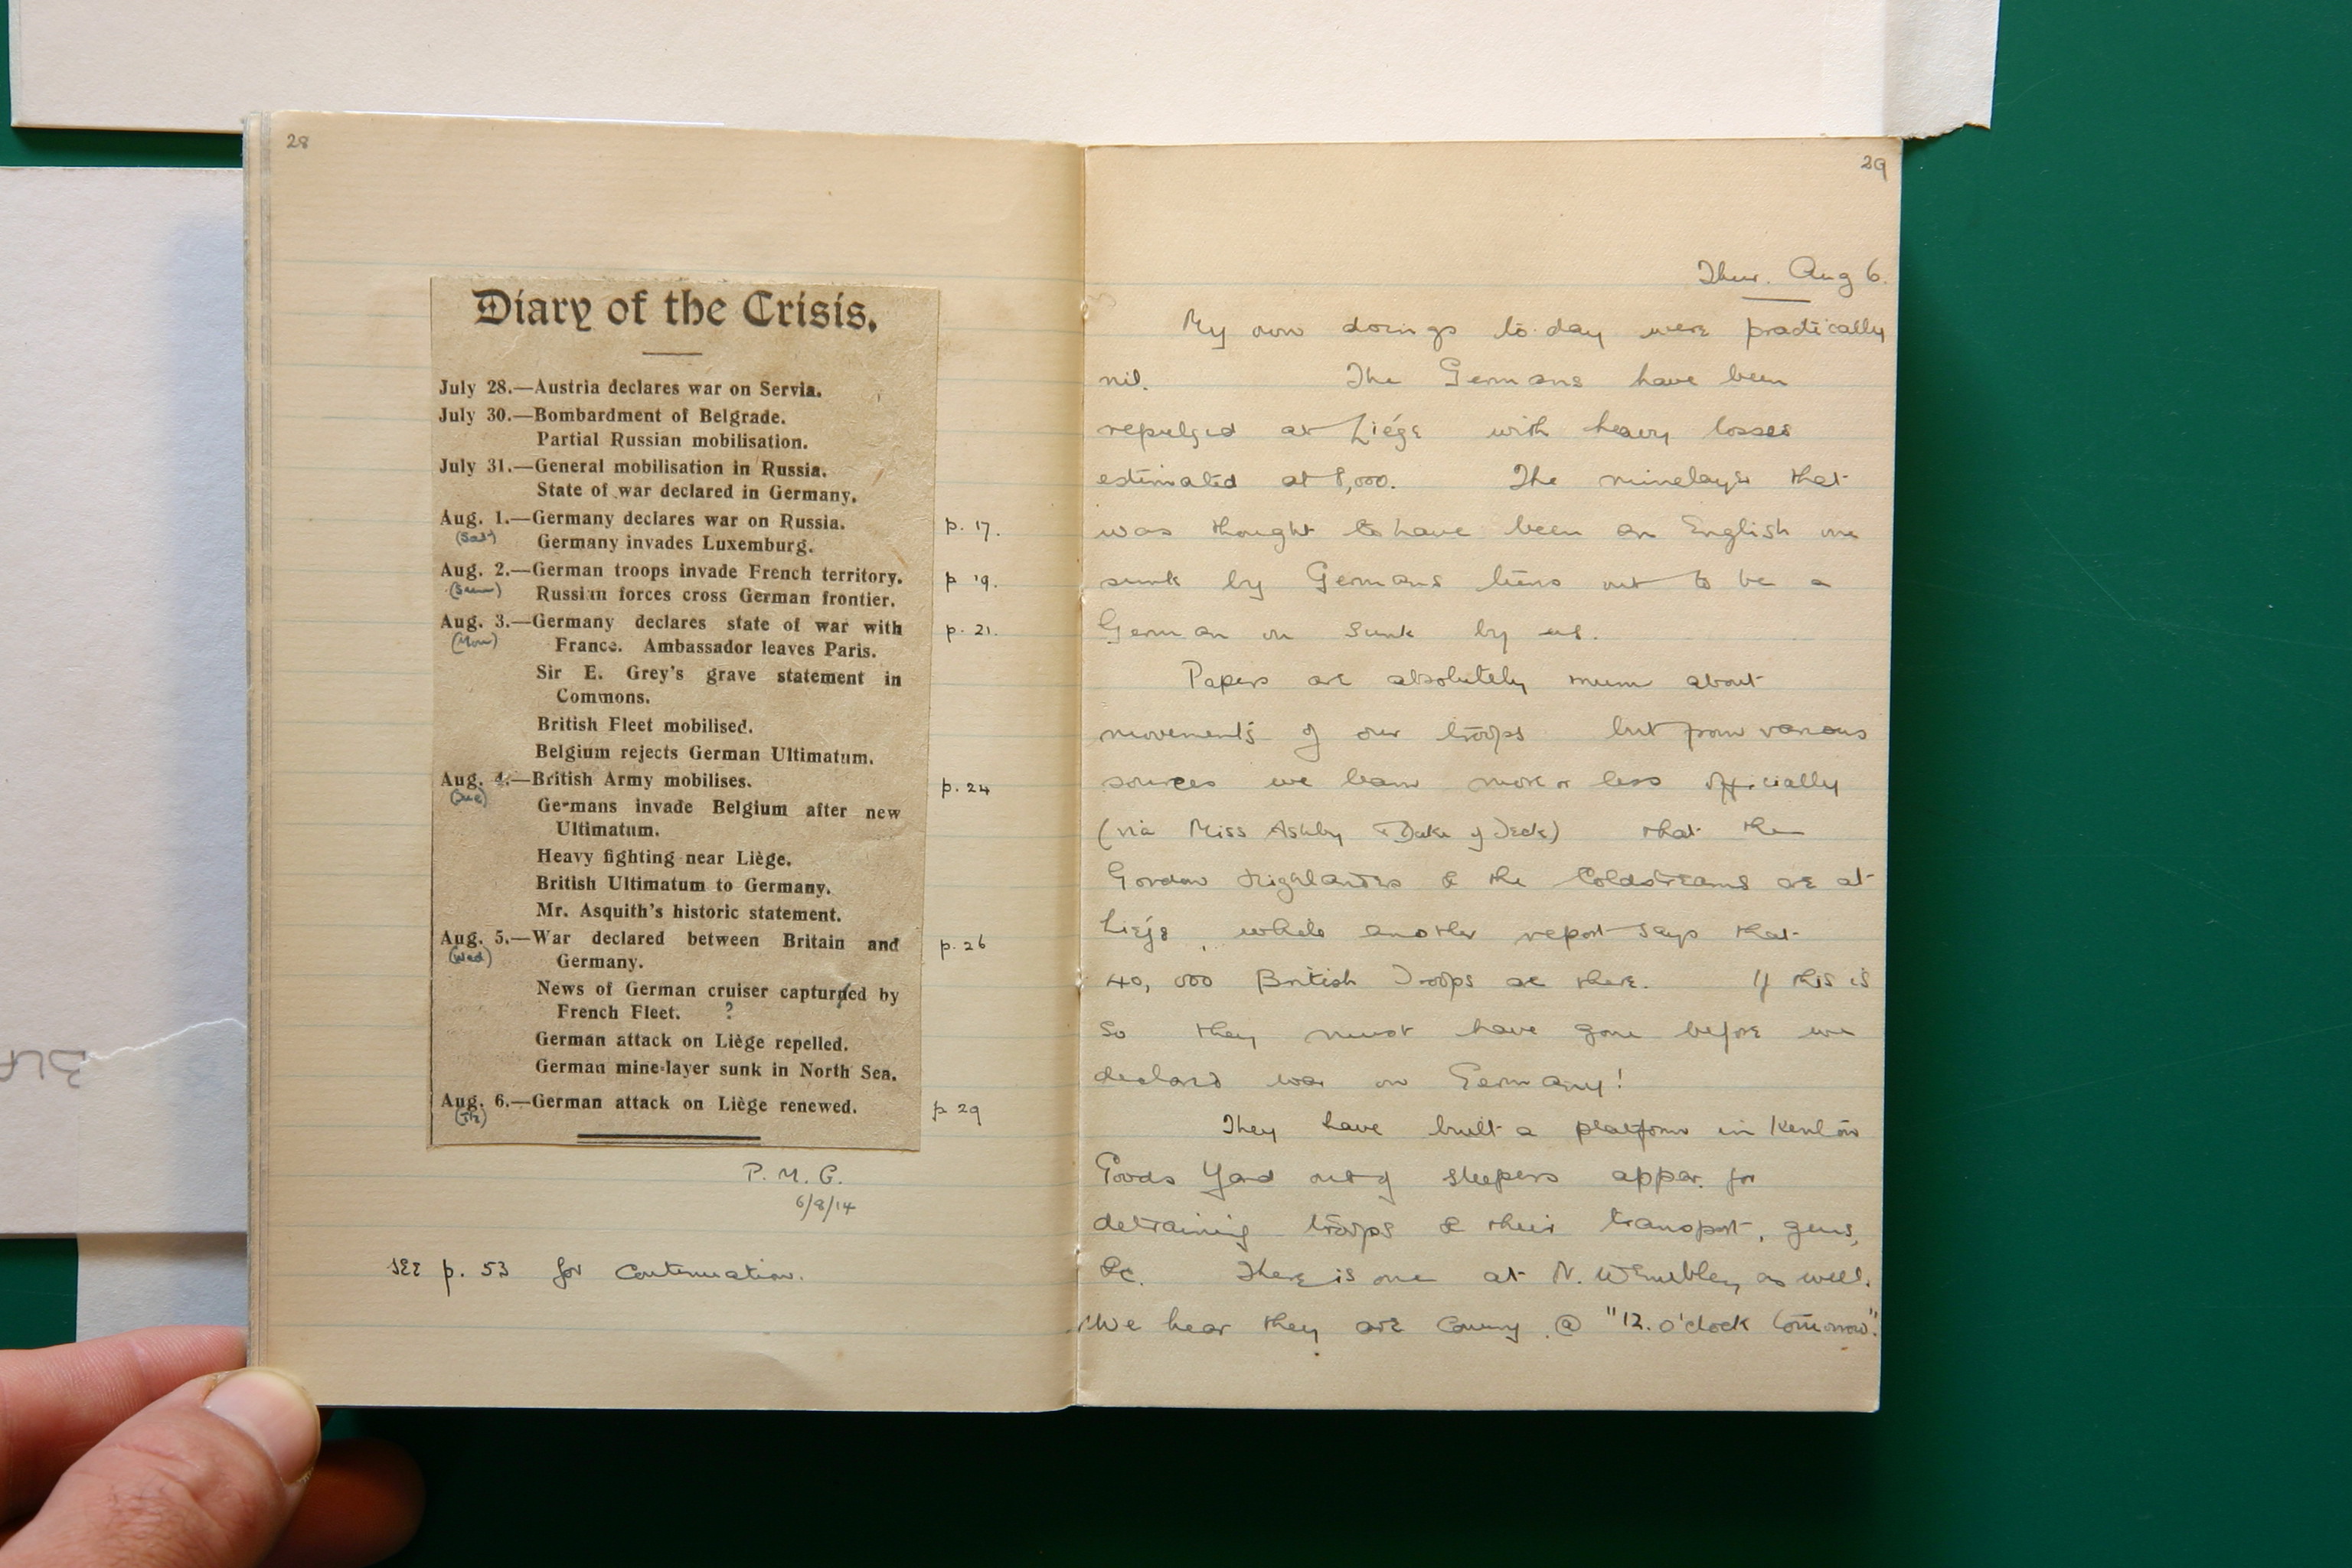 28
Diary of the Crisis.
July 28.—Austria declares war on Servia.
July 30.—Bombardment of Belgrade.
Partial Russian mobilisation.
July 31.—General mobilisation in Russia.
State of war declared in Germany.
Aug. 1.—Germany declares war on Russia. p. 17.
(Sat) Germany invades Luxemburg.
Aug. 2.—German troops invade French territory. p 19.
(Sun) Russian forces cross German frontier.
Aug. 3.—Germany declares state of war with p. 21.
(Mon) France. Ambassador leaves Paris.
Sir E. Grey's grave statement in
Commons.
British Fleet mobilised.
Belgium rejects German Ultimatum.
Aug. 4.—British Army mobilises. p. 24
(Tue) Germans invade Belgium after new
Ultimatum.
Heavy fighting near Liège.
British Ultimatum to Germany.
Mr. Asquith's historic statement.
Aug. 5.—War declared between Britain and p. 26
(Wed) Germany.
News of German cruiser captured by
French Fleet. ?
German attack on Liège repelled.
German mine-layer sunk in North Sea.
Aug. 6.—German attack on Liège renewed. p 29
(Th)
P. M. G.
6/8/14
SEE p. 53 for continuation.
29
Thur. Aug 6.
My own doings to day were practically
nil. The Germans have been
repulsed at Liége with heavy losses
estimated at 8,000. The minelayer that
was thought to have been an English one
sunk by Germans turns out to be a
German on sunk by us.
Papers are absolutely mum about
movements of our troops but from various
sources we learn more or less officially
(via Miss Ashby & Duke of Teck) that the
Gordon Highlanders & the Coldstreams are at
Liége, while another report says that
40,000 British Troops are there. If this is
so they must have gone before we
declared war on Germany!
They have built a platform in Kenton
Goods Yard out of sleepers appar. for
detraining troops & their transport, guns,
&c. There is one at N. Wembley as well.
We hear they are coming @ "12. o'clock tomorrow".